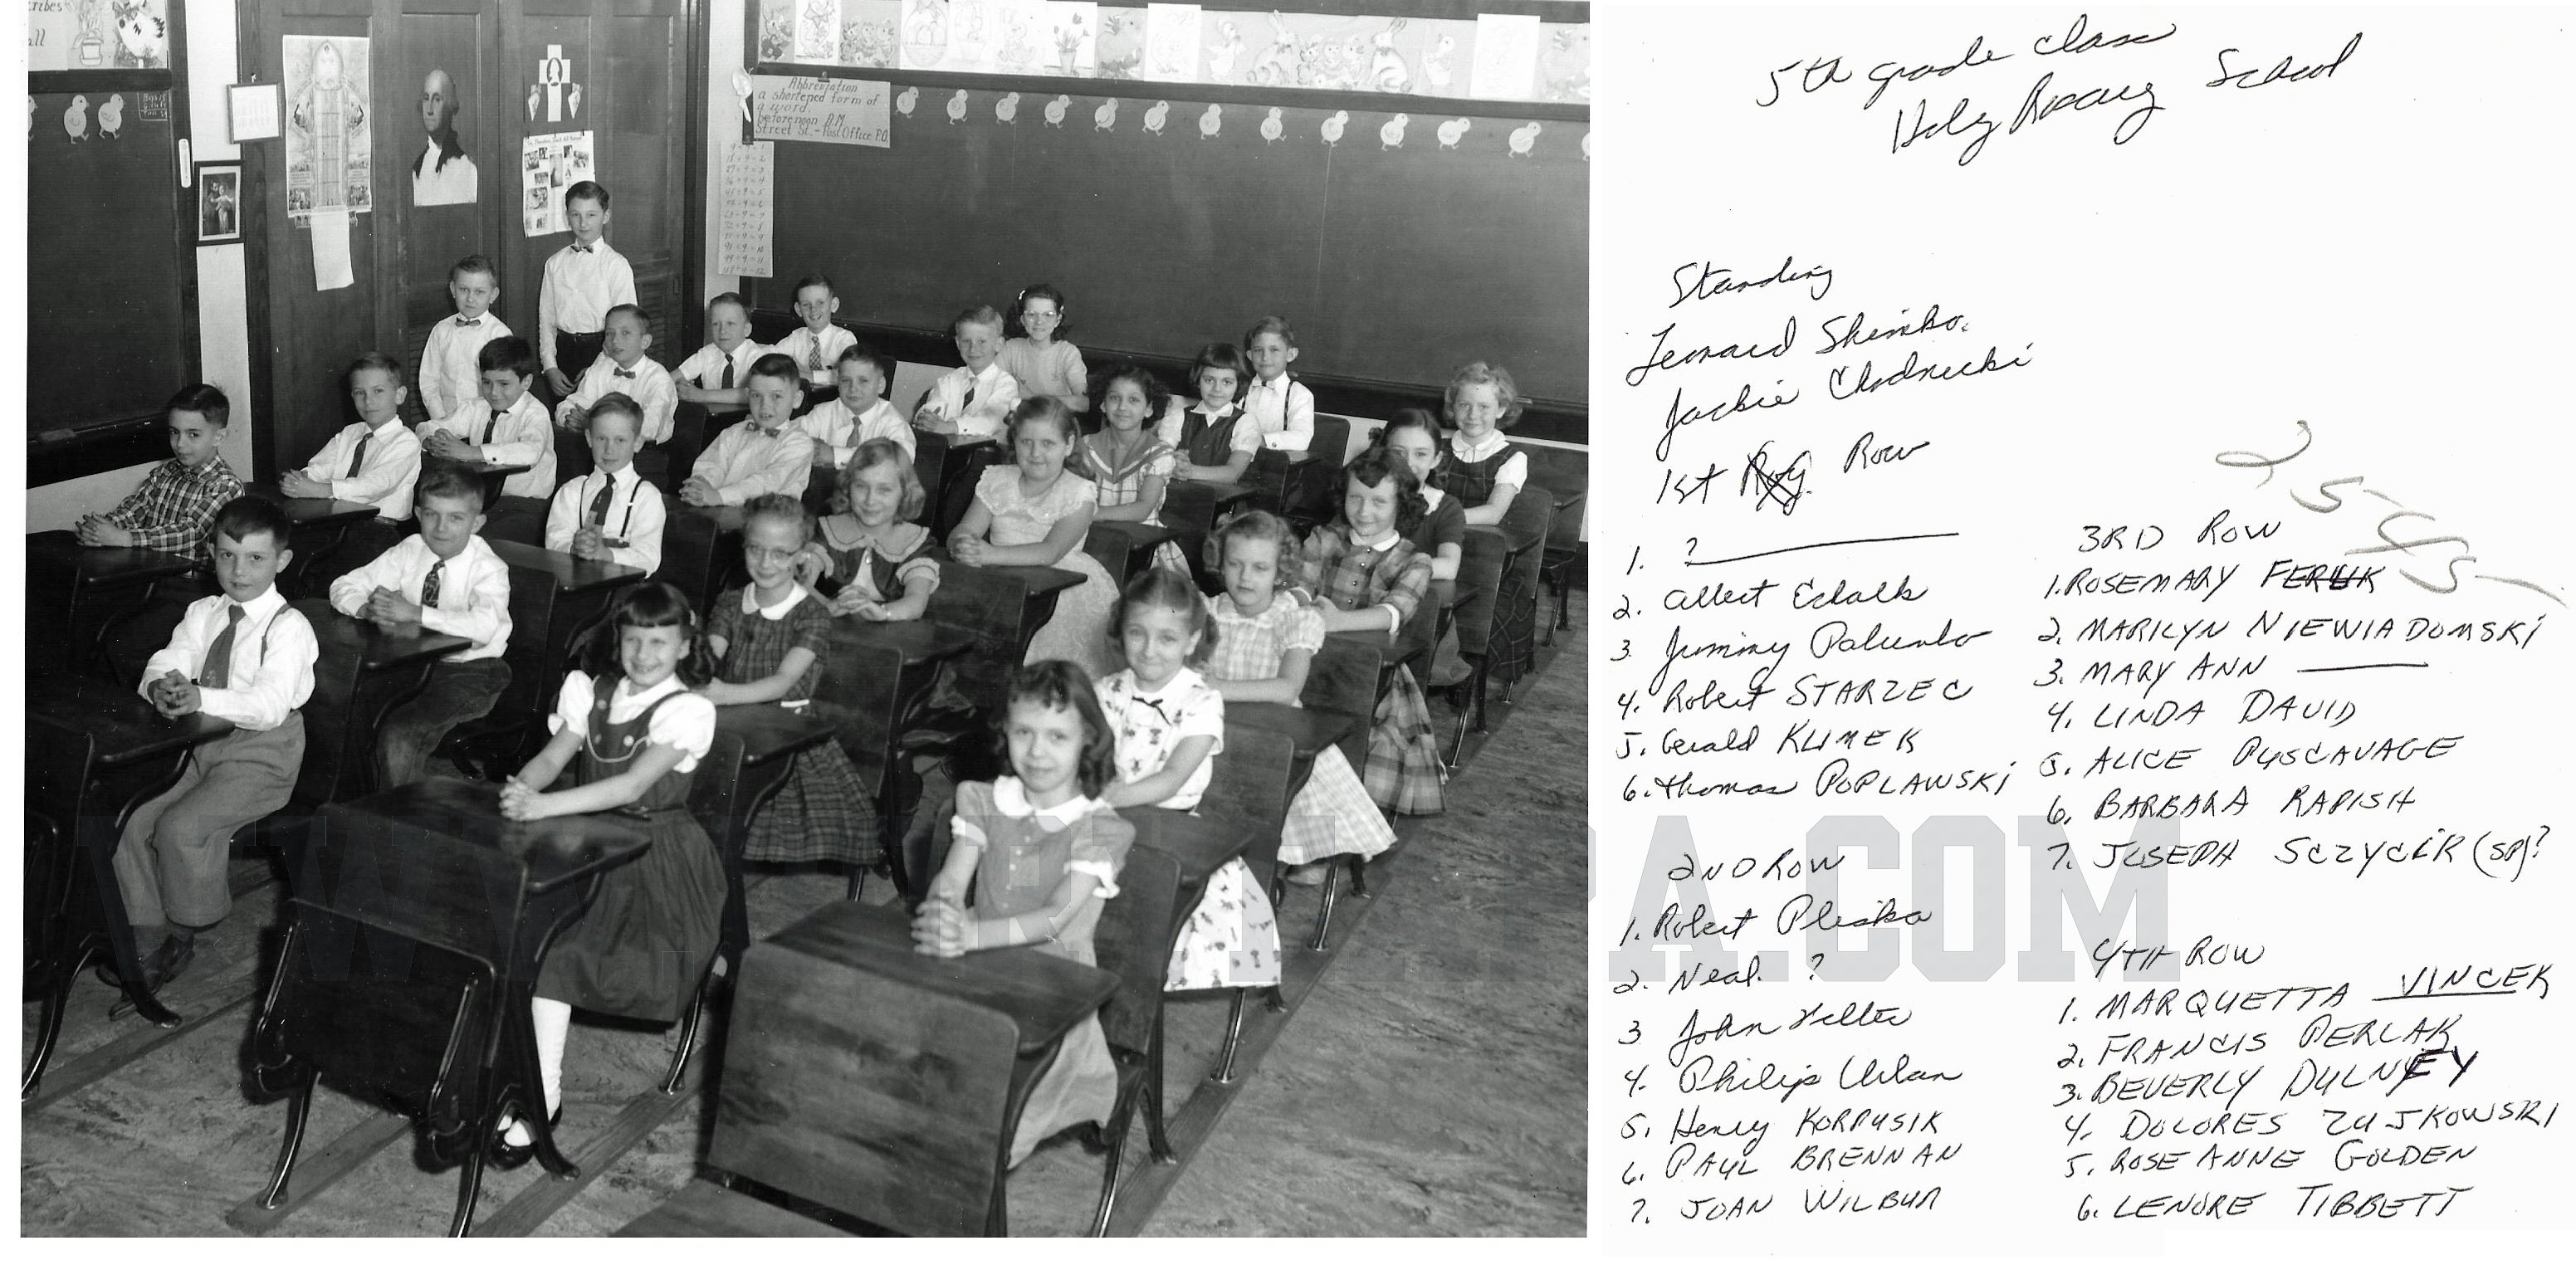 cribes
all
Abbreviation
a shortened form of
a word.
beforenoon A.M.
Street St.- Post Office P.O.
5th grade class
Holy Rosary School
Standing
Leonard Shimko.
Jackie Chodnicki
1st Row
1. ?
2. Albert
3 Jimmy Palumbo
4. Robert STARZEC
5. Gerald KLIMEK
6. Thomas POPLAWSKi
2ND ROW
1. Robert Pleska
2. Neal. ?
3 John
4. Philip Urban
5. Henry KORPUSIK
6. PAUL BRENNAN
7. JOAN WILBUR
3RD ROW
1. ROSEMARY
2. MARILYN NIEWIADOMSKi
3. MARY ANN
4. LINDA DAVID
5. ALICE PUSCAVAGE
6. BARBARA RAPISH
7. JOSEPH SCZYCiK (SP)?
4TH ROW
1. MARQUETTA VINCEK
2. FRANCIS PERLAK
3. BEVERLY
4. DOLORES ZUJKOWSKI
5. ROSE ANNE GOLDEN
6. LENORE TIBBETT